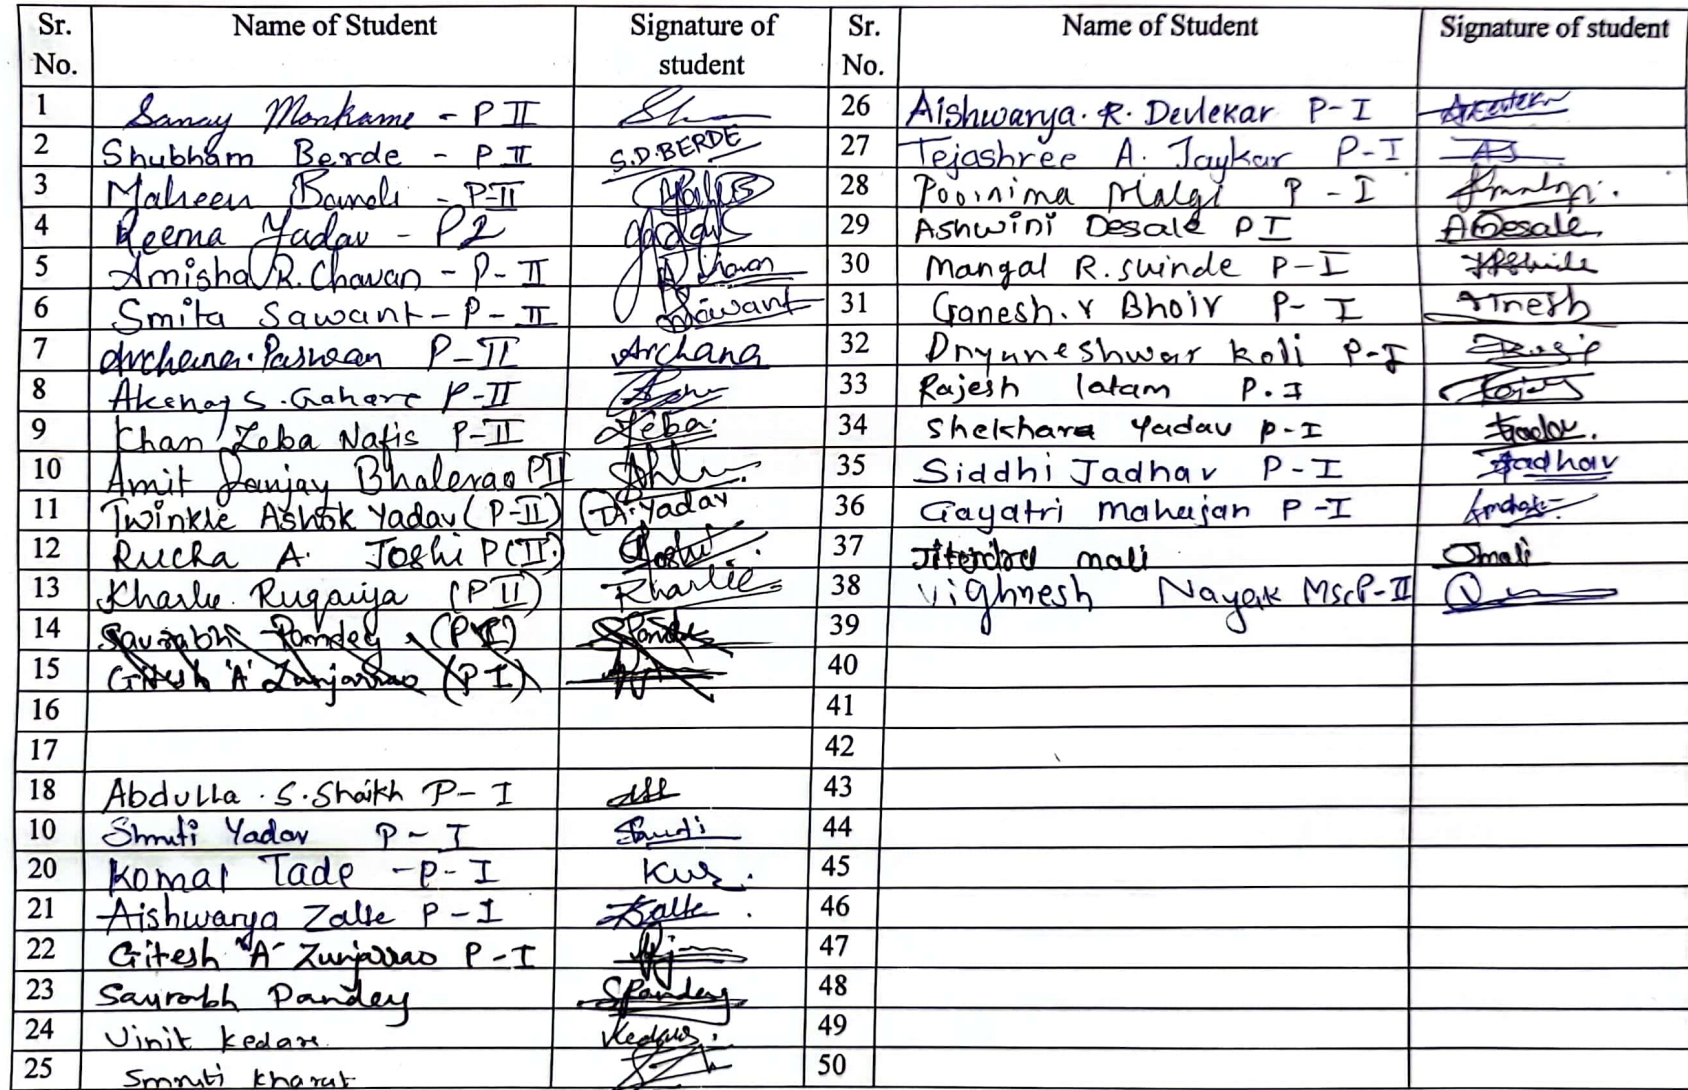 Sr. No. Name of Student Signature of student Sr. No. Name of Student Signature of student
1 Sanay Monkame - P II 26 Aishwarya. R. Devlekar P-I
2 Shubham Berde - P II S.D.BERDE 27 Tejashree A. Jaykar P-I AJ
3 Maheen - P-II 28 Poornima Malgi P-I
4 Reema Yadav - P2 29 Ashwini Desale P I ADesale
5 Amisha R. Chavan - P-II 30 Mangal R. Shinde P-I
6 Smita Sawant - P-II Sawant 31 Ganesh. Y Bhoir P-I
7 Archana. Paswan P-II Archana 32 Dnyaneshwar Koli P-I
8 S. Gahare P-II 33 Rajesh latam P.I
9 Khan Zeba Nafis P-II Zeba. 34 Shekhar Yadav P-I Yadav.
10 Amit Sanjay Bhalerao PII 35 Siddhi Jadhav P-I Jadhav
11 Twinkle Ashok Yadav (P-II) Yadav 36 Gayatri Mahajan P-I
12 Rucha A. Joshi P(II) Joshi 37 Jitendra mali Jmali
13 Kharlie Ruqaiya (PII) Kharlie 38 Vighnesh Nayak MScP-II
14 Saurabh Pandey 39
15 Gitesh 'A' Zunjarrao (PI) 40
16 41
17 42
18 Abdulla . S. Shaikh P-I 43
10 Shruti Yadav P-I Shruti 44
20 Komal Tade -P-I 45
21 Aishwarya Zalte P-I Zalte . 46
22 Gitesh "A" Zunjarrao P-I 47
23 Saurabh Pandey SPandey 48
24 Vinit Kedare 49
25 Smruti Kharat 50